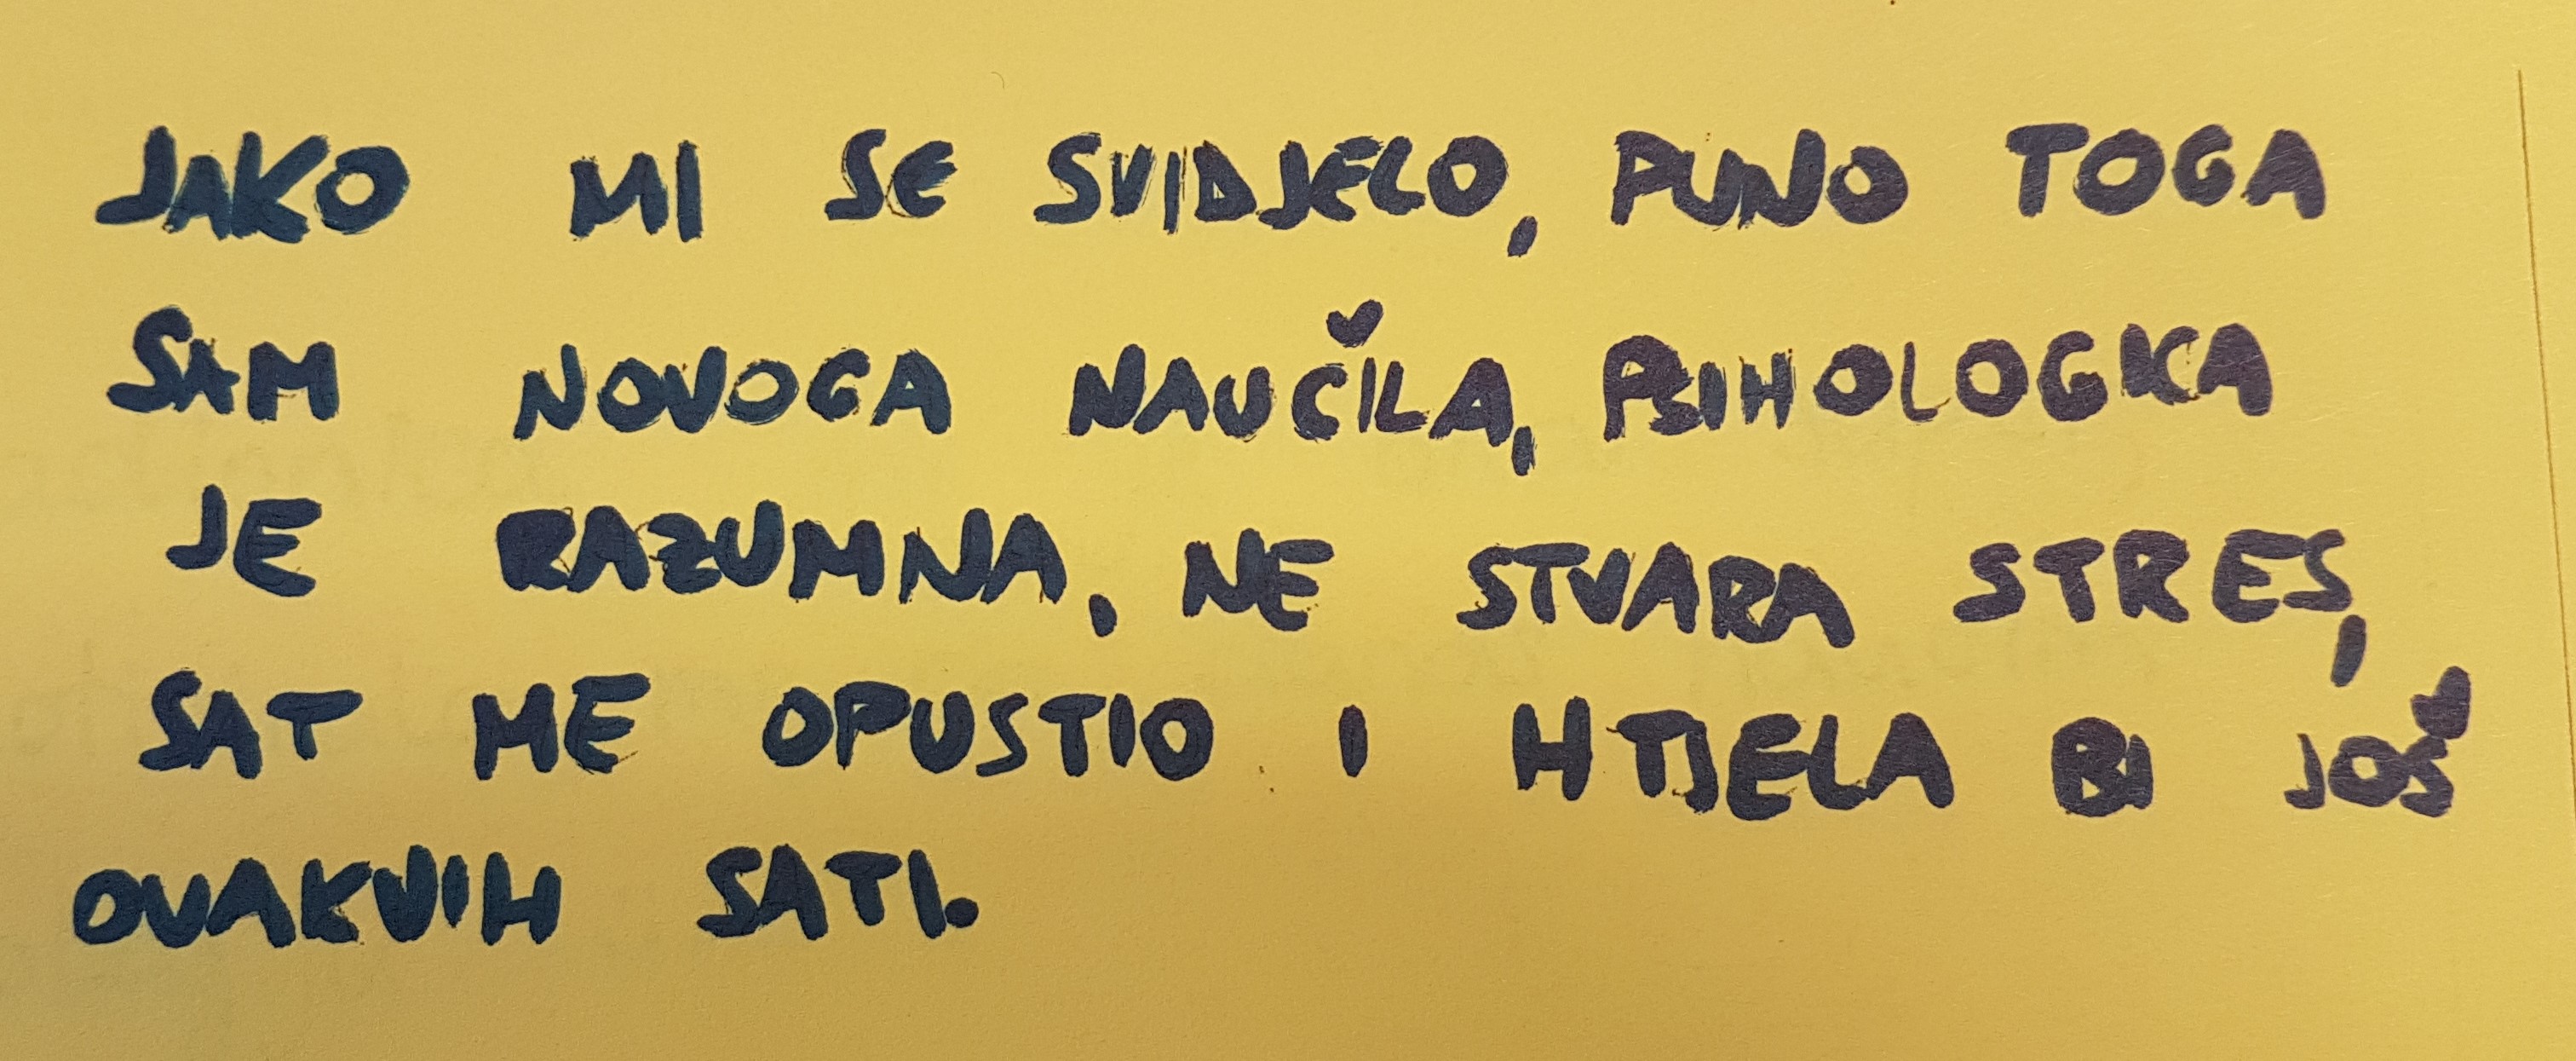 JAKO MI SE SVIDJELO, PUNO TOGA
SAM NOVOGA NAUČILA, PSIHOLOGKA
JE RAZUMNA, NE STVARA STRES,
SAT ME OPUSTIO I HTJELA BI JOŠ
OVAKVIH SATI.